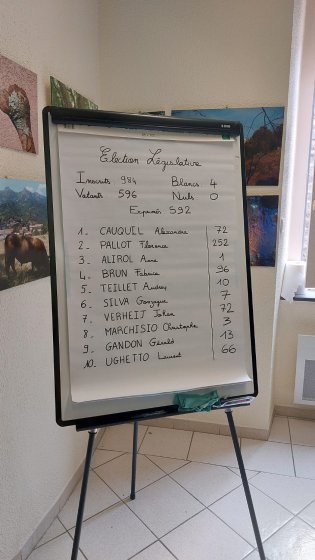 Election Législative
Inscrits 984 Blancs 4
Votants 596 Nuls 0
Exprimés 592
1_ CAUQUIL Alexandre 72
2_ PALLOT Florence 252
3_ ALIROL Anne 1
4_ BRUN Fabrice 96
5_ TEILLET Audrey 10
6_ SILVA Gonzague 7
7_ VERHEIJ Johan 72
8_ MARCHISIO Christophe 3
9_ GANDON Gérald 13
10_ UGHETTO Laurent 66